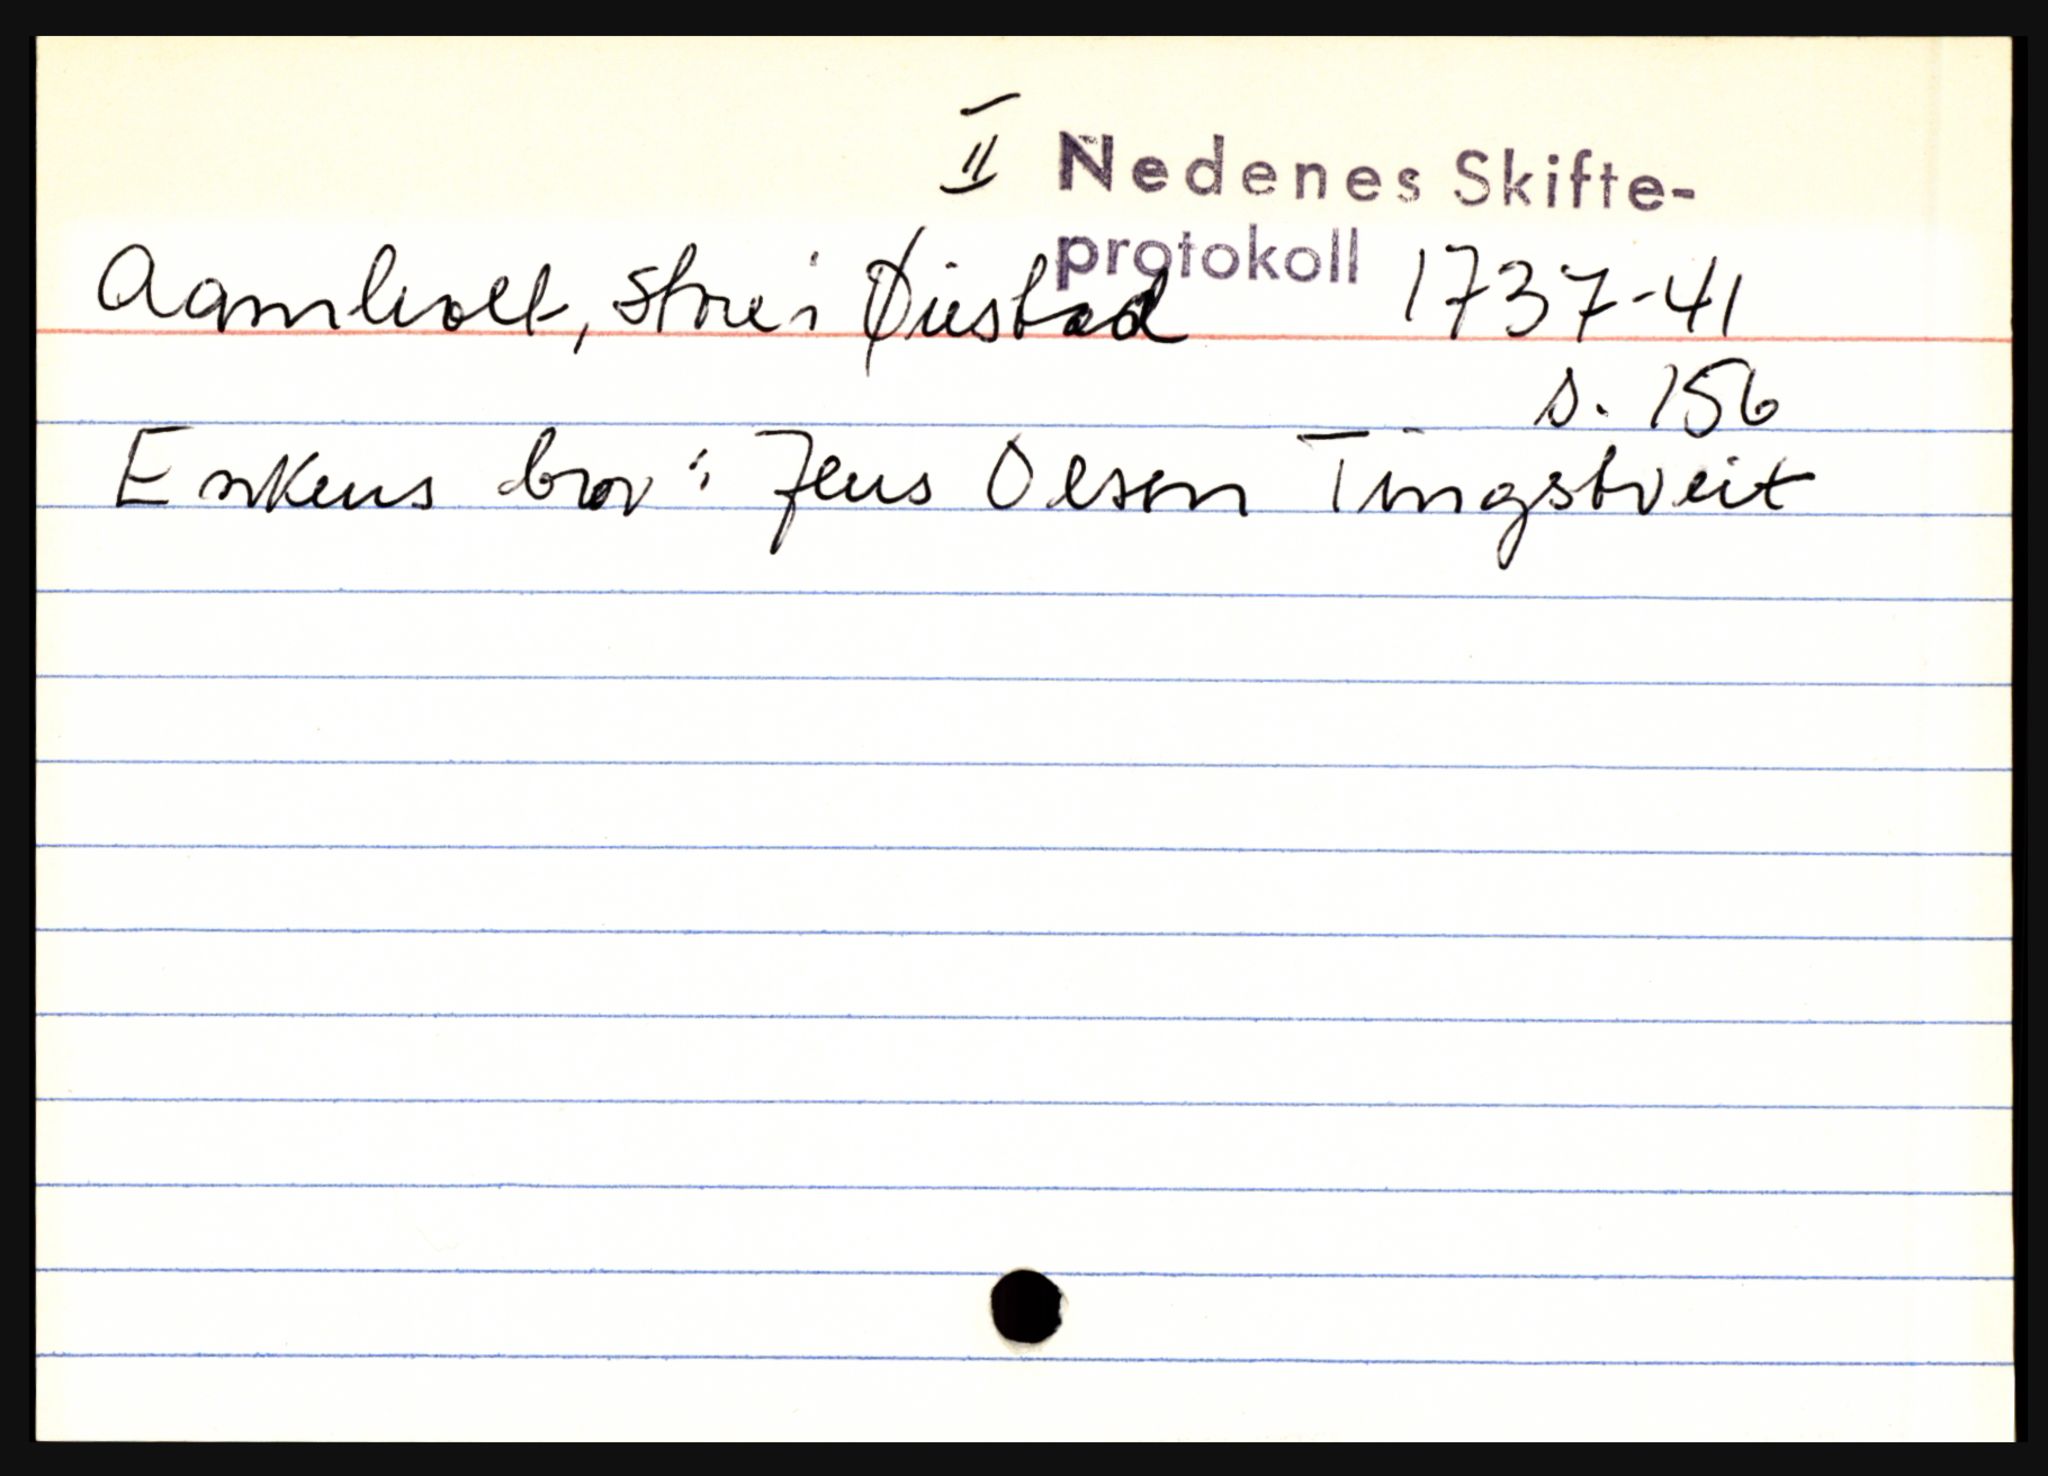 II Nedenes Skifte-
protokoll
Aamholt, store i Øiestad 1737-41
s. 156
Enkens bror: Jens Olsen Tingstveit